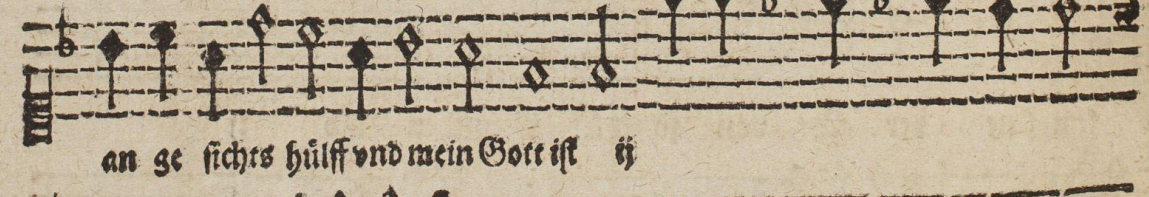 an ge sichts hülff vnd mein Gott ist ij